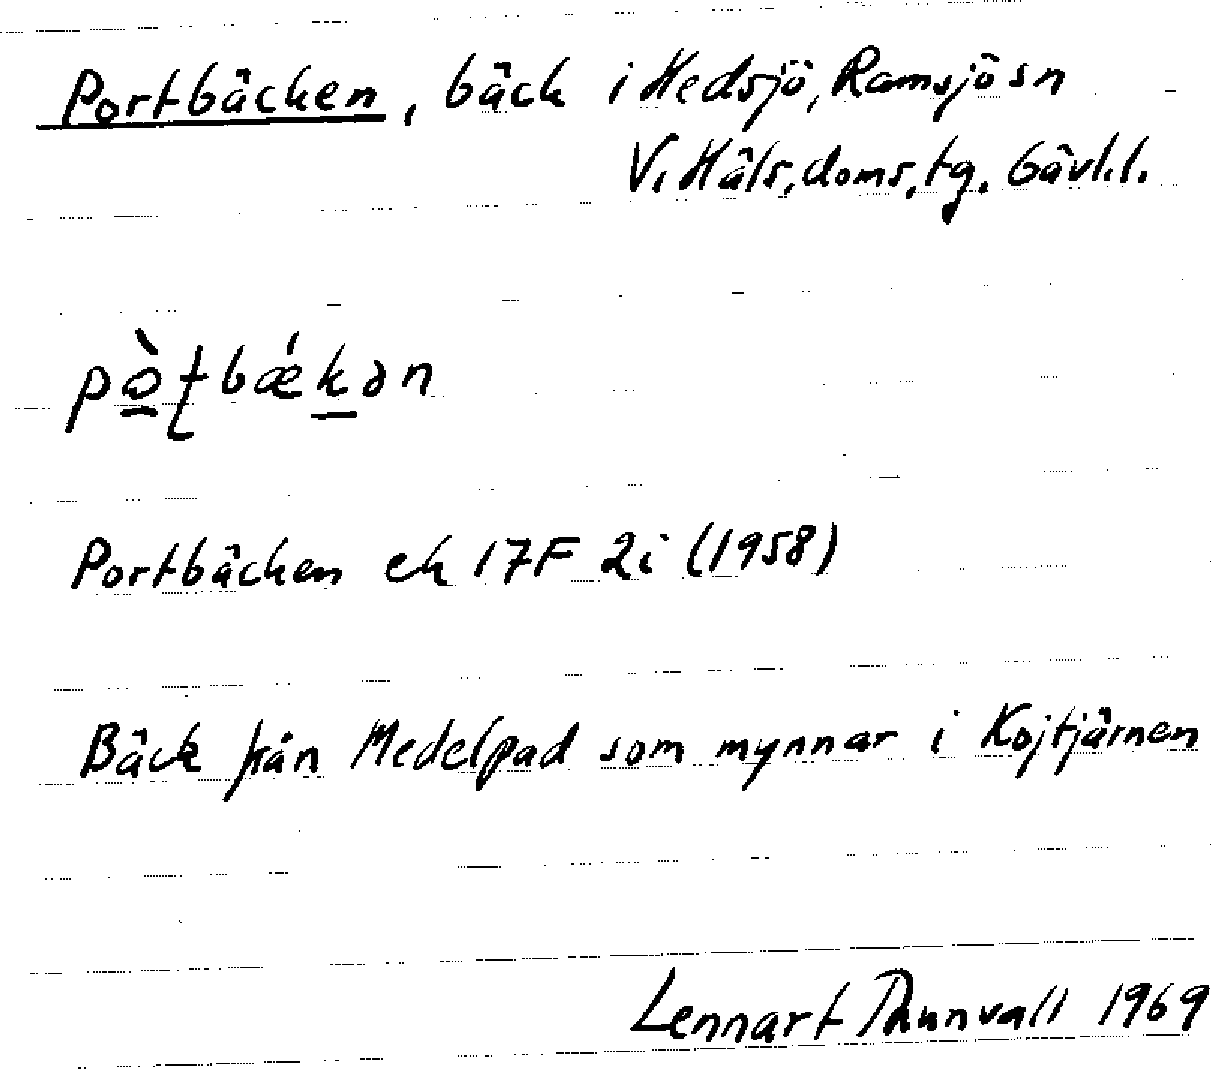 Portbäcken, bäck i Hedsjö, Ramsjö sn
V. Häls. doms. tg. Gävl.l.
pò̱ʈbǽḵən
Portbäcken ek 17F 2i (1958)
Bäck från Medelpad som mynnar i Kojtjärnen
Lennart Thunvall 1969